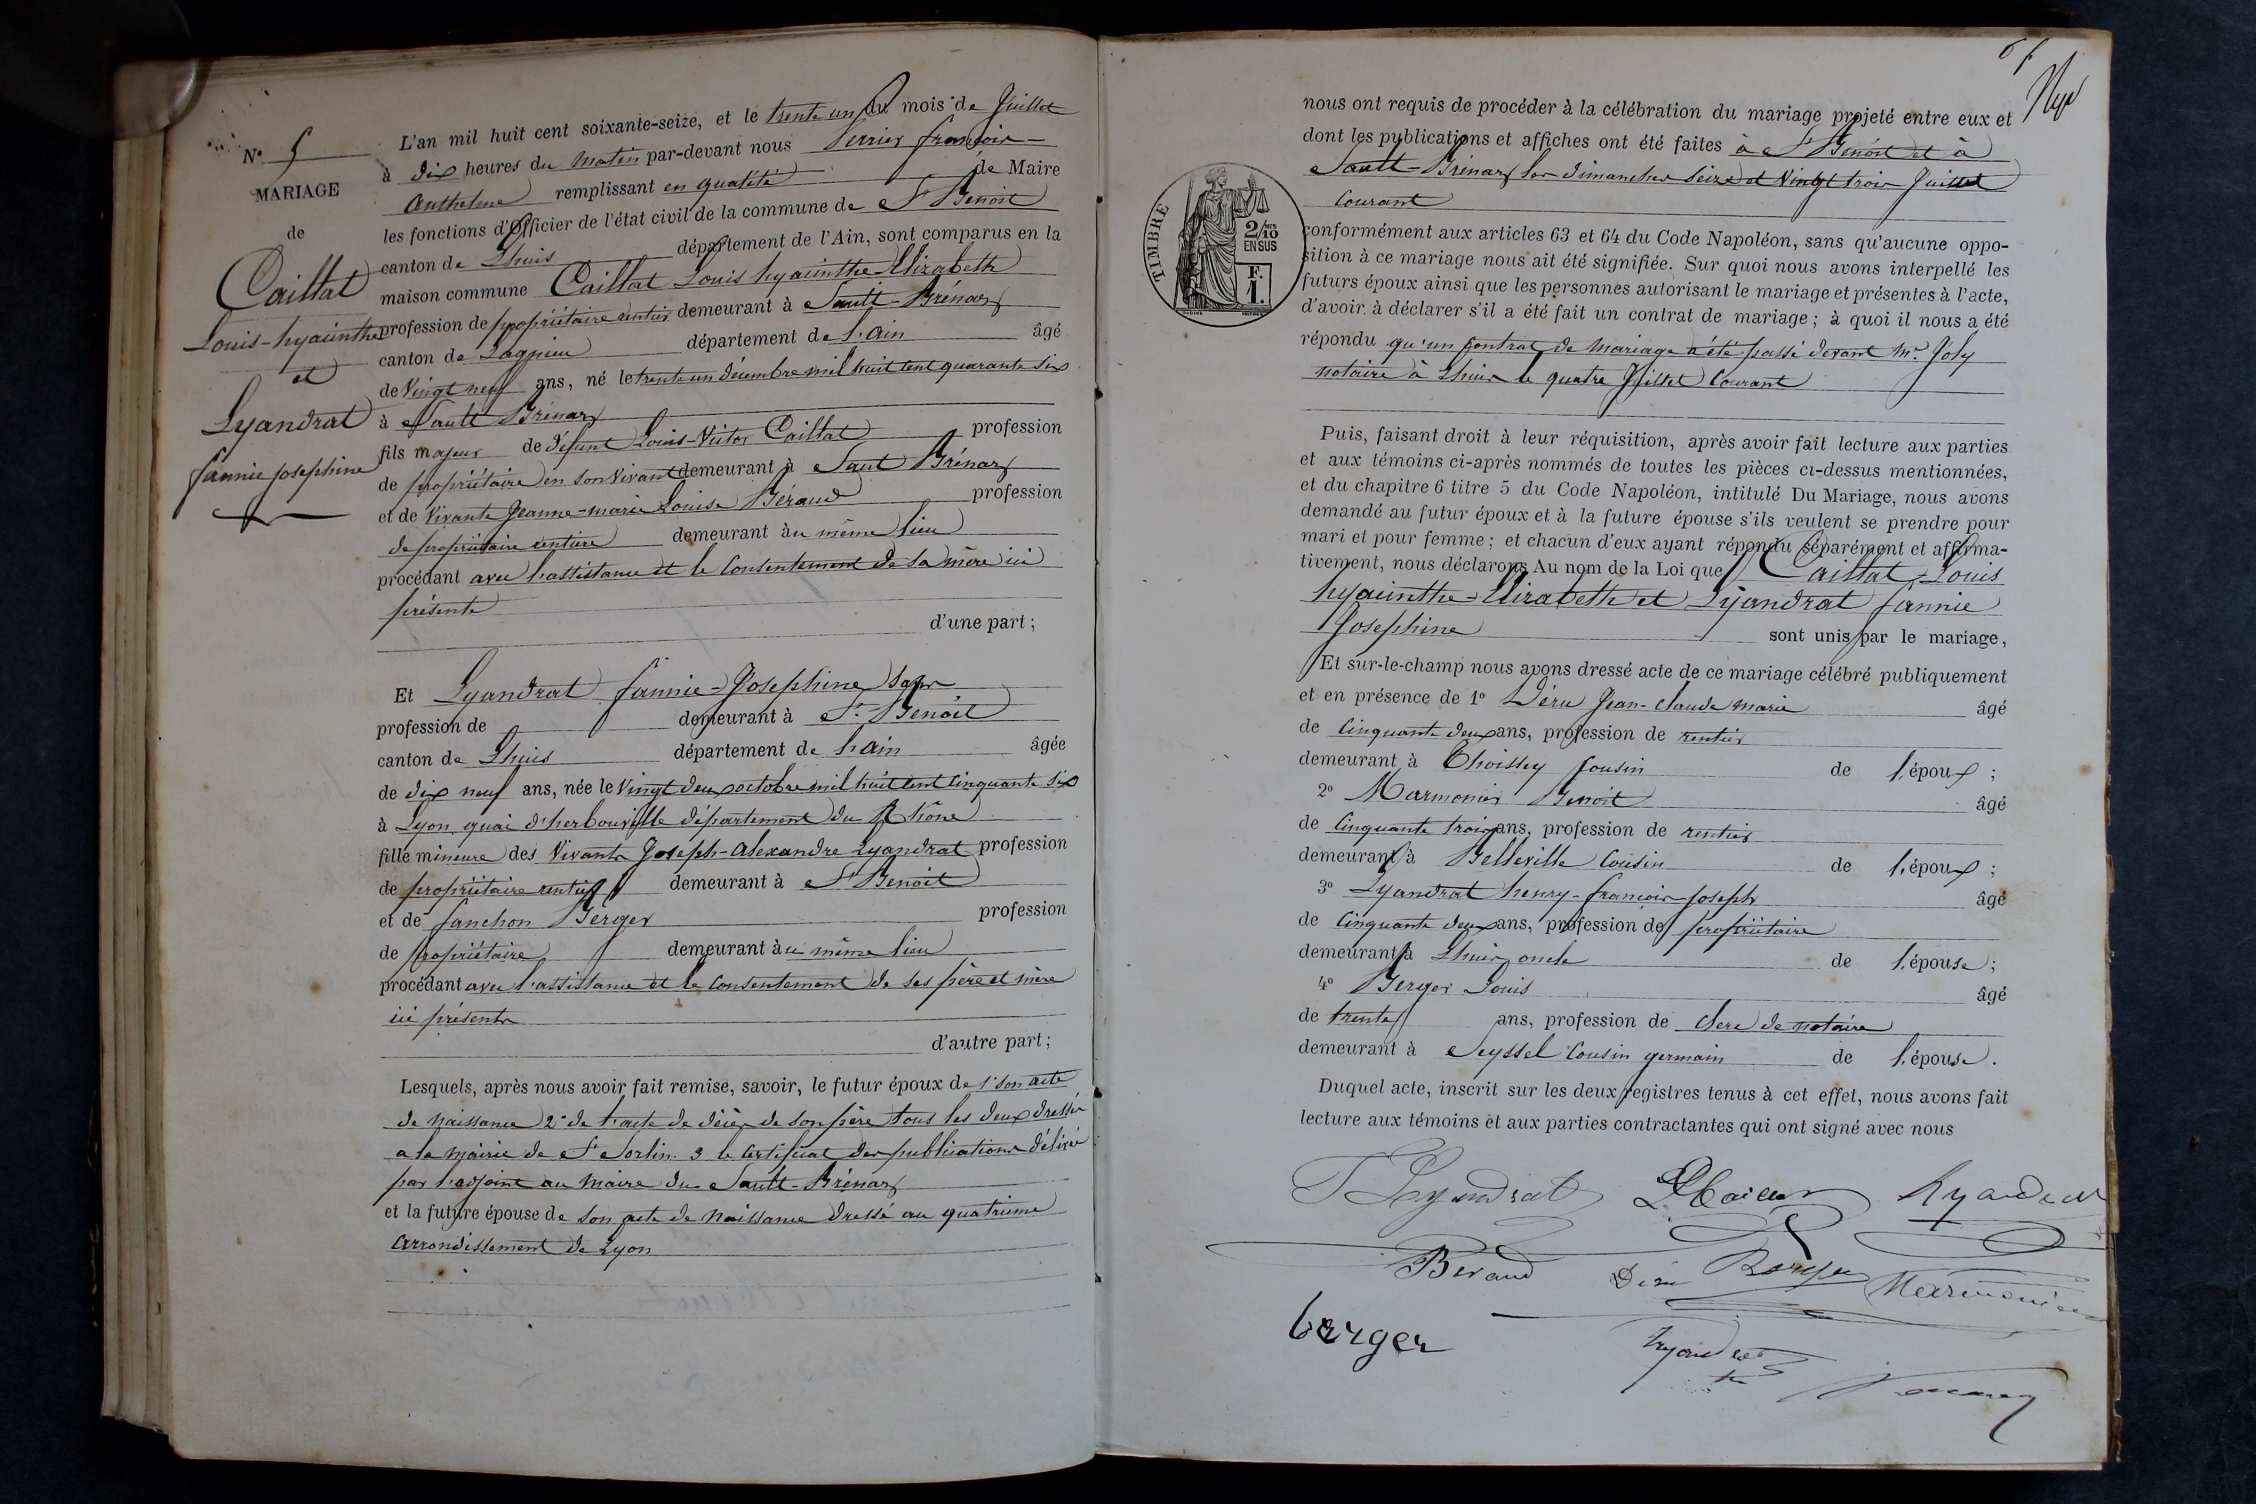 N° 5
MARIAGE
de
Caillat
Louis-hyacinthe
et
Lyandrat
fannie josephine
L'an mil huit cent soixante-seize, et le trente un du mois de Juillet
à dix heures du matin par-devant nous françois
Anthelme remplissant en qualité de Maire
les fonctions d'Officier de l'état civil de la commune de St Benoit
canton de Lhuis département de l'Ain, sont comparus en la
maison commune Caillat Louis hyacinthe Elizabeth
profession de propriétaire rentier demeurant à Sault-Brénaz
canton de Lagnieu département de l'ain âgé
de vingt neuf ans, né le trente un décembre mil huit cent quarante six
à Sault Brénaz
fils majeur de défunt Louis-Victor Caillat profession
de propriétaire en son vivant demeurant à Saut Brénaz
et de vivante Jeanne-marie Louise Béraud profession
de propriétaire rentière demeurant au même lieu
procédant avec l'assistance et le consentement de sa mère ici
présente
d'une part ;
Et Lyandrat fannie-Josephine
profession de demeurant à St Benoit
canton de Lhuis département de l'ain âgée
de dix neuf ans, née le vingt deux octobre mil huit cent cinquante six
à Lyon quai d'herbouville département du Rhône
fille mineure des vivants Joseph-Alexandre Lyandrat profession
de propriétaire rentier demeurant à St Benoit
et de fanchon Berger profession
de propriétaire demeurant au même lieu
procédant avec l'assistance et le consentement de ses père et mère
ici présents
d'autre part ;
Lesquels, après nous avoir fait remise, savoir, le futur époux de 1° son acte
de naissance 2° de l'acte de décès de son père tous les deux dressés
a la mairie de St Sorlin. 3 le certificat des publications délivré
par l'adjoint au maire du Sault-Brénaz
et la future épouse de son acte de naissance dressé au quatrième
arrondissement de Lyon
nous ont requis de procéder à la célébration du mariage projeté entre eux et
dont les publications et affiches ont été faites à St Benoit et à
Sault-Brénaz les dimanches seize et vingt trois Juillet
courant
TIMBRE
2/10 MES
EN SUS
F.
1.
conformément aux articles 63 et 64 du Code Napoléon, sans qu'aucune oppo-
sition à ce mariage nous ait été signifiée. Sur quoi nous avons interpellé les
futurs époux ainsi que les personnes autorisant le mariage et présentes à l'acte,
d'avoir à déclarer s'il a été fait un contrat de mariage ; à quoi il nous a été
répondu qu'un contrat de mariage a été passé devant Me Joly
notaire à Lhuis le quatre Juillet courant
Puis, faisant droit à leur réquisition, après avoir fait lecture aux parties
et aux témoins ci-après nommés de toutes les pièces ci-dessus mentionnées,
et du chapitre 6 titre 5 du Code Napoléon, intitulé Du Mariage, nous avons
demandé au futur époux et à la future épouse s'ils veulent se prendre pour
mari et pour femme ; et chacun d'eux ayant répondu séparément et affirma-
tivement, nous déclarons Au nom de la Loi que Caillat Louis
hyacinthe-Elizabeth et Lyandrat fannie
Josephine sont unis par le mariage,
Et sur-le-champ nous avons dressé acte de ce mariage célébré publiquement
et en présence de 1° Déru Jean-claude marie âgé
de cinquante deux ans, profession de rentier
demeurant à Thoissey cousin de l'époux ;
2° Marmonier Benoit âgé
de cinquante trois ans, profession de rentier
demeurant à Belleville cousin de l'époux ;
3° Lyandrat henry-françois-joseph âgé
de cinquante deux ans, profession de propriétaire
demeurant à Lhuis oncle de l'épouse ;
4° Berger Louis âgé
de trente ans, profession de clerc de notaire
demeurant à Seyssel cousin germain de l'épouse.
Duquel acte, inscrit sur les deux registres tenus à cet effet, nous avons fait
lecture aux témoins et aux parties contractantes qui ont signé avec nous
Lyandrat
Beraud Déru Berger Marmonier
berger